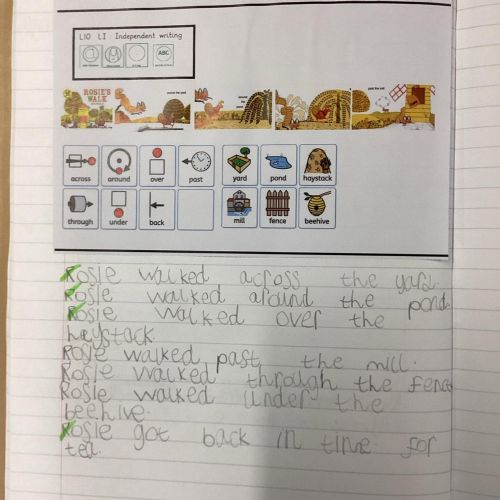 L10 LI: Independent writing
ABC
ROSIE'S WALK
across the yard
around the pond
past the mill
across around over past yard pond haystack
through under back mill fence beehive
Rosie walked across the yard
Rosie walked around the pond
Rosie walked over the
haystack.
Rosie walked past the mill.
Rosie walked through the fence
Rosie walked under the
beehive.
Rosie got back in time for
tea.